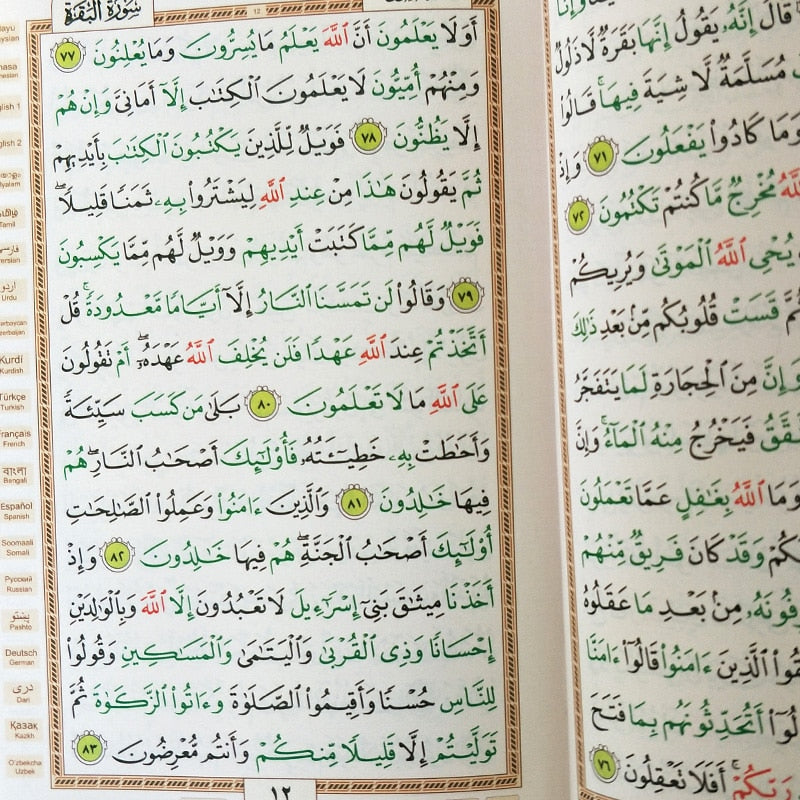 سُورَةُ البَقَرَةِ
12
أَوَلَا يَعْلَمُونَ أَنَّ ٱللَّهَ يَعْلَمُ مَا يُسِرُّونَ وَمَا يُعْلِنُونَ ٧٧
وَمِنْهُمْ أُمِّيُّونَ لَا يَعْلَمُونَ ٱلْكِتَٰبَ إِلَّآ أَمَانِىَّ وَإِنْ هُمْ
إِلَّا يَظُنُّونَ ٧٨ فَوَيْلٌ لِّلَّذِينَ يَكْتُبُونَ ٱلْكِتَٰبَ بِأَيْدِيهِمْ
ثُمَّ يَقُولُونَ هَٰذَا مِنْ عِندِ ٱللَّهِ لِيَشْتَرُوا۟ بِهِۦ ثَمَنًا قَلِيلًا ۖ
فَوَيْلٌ لَّهُم مِّمَّا كَتَبَتْ أَيْدِيهِمْ وَوَيْلٌ لَّهُم مِّمَّا يَكْسِبُونَ
٧٩ وَقَالُوا۟ لَن تَمَسَّنَا ٱلنَّارُ إِلَّآ أَيَّامًا مَّعْدُودَةً ۚ قُلْ
أَتَّخَذْتُمْ عِندَ ٱللَّهِ عَهْدًا فَلَن يُخْلِفَ ٱللَّهُ عَهْدَهُۥٓ ۖ أَمْ تَقُولُونَ
عَلَى ٱللَّهِ مَا لَا تَعْلَمُونَ ٨٠ بَلَىٰ مَن كَسَبَ سَيِّئَةً
وَأَحَٰطَتْ بِهِۦ خَطِيٓـَٔتُهُۥ فَأُو۟لَٰٓئِكَ أَصْحَٰبُ ٱلنَّارِ ۖ هُمْ
فِيهَا خَٰلِدُونَ ٨١ وَٱلَّذِينَ ءَامَنُوا۟ وَعَمِلُوا۟ ٱلصَّٰلِحَٰتِ
أُو۟لَٰٓئِكَ أَصْحَٰبُ ٱلْجَنَّةِ ۖ هُمْ فِيهَا خَٰلِدُونَ ٨٢ وَإِذْ
أَخَذْنَا مِيثَٰقَ بَنِىٓ إِسْرَٰٓءِيلَ لَا تَعْبُدُونَ إِلَّا ٱللَّهَ وَبِٱلْوَٰلِدَيْنِ
إِحْسَانًا وَذِى ٱلْقُرْبَىٰ وَٱلْيَتَٰمَىٰ وَٱلْمَسَٰكِينِ وَقُولُوا۟
لِلنَّاسِ حُسْنًا وَأَقِيمُوا۟ ٱلصَّلَوٰةَ وَءَاتُوا۟ ٱلزَّكَوٰةَ ثُمَّ
تَوَلَّيْتُمْ إِلَّا قَلِيلًا مِّنكُمْ وَأَنتُم مُّعْرِضُونَ ٨٣
١٢
قَالَ إِنَّهُۥ يَقُولُ إِنَّهَا بَقَرَةٌ لَّا ذَلُولٌ
مُسَلَّمَةٌ لَّا شِيَةَ فِيهَا ۚ قَالُوا۟
وَمَا كَادُوا۟ يَفْعَلُونَ ٧١ وَإِذْ
مُخْرِجٌ مَّا كُنتُمْ تَكْتُمُونَ ٧٢
يُحْىِ ٱللَّهُ ٱلْمَوْتَىٰ وَيُرِيكُمْ
قَسَتْ قُلُوبُكُم مِّنۢ بَعْدِ ذَٰلِكَ
وَإِنَّ مِنَ ٱلْحِجَارَةِ لَمَا يَتَفَجَّرُ
فَيَخْرُجُ مِنْهُ ٱلْمَآءُ ۚ وَإِنَّ
وَمَا ٱللَّهُ بِغَٰفِلٍ عَمَّا تَعْمَلُونَ
وَقَدْ كَانَ فَرِيقٌ مِّنْهُمْ
مِنۢ بَعْدِ مَا عَقَلُوهُ
ٱلَّذِينَ ءَامَنُوا۟ قَالُوٓا۟ ءَامَنَّا
أَتُحَدِّثُونَهُم بِمَا فَتَحَ
رَبِّكُمْ ۚ أَفَلَا تَعْقِلُونَ ٧٦
English 2
தமிழ்
Tamil
فارسی
اردو
Urdu
Kurdî
Kurdish
Türkçe
Turkish
Français
French
বাংলা
Bengali
Español
Spanish
Soomaali
Somali
Русский
Russian
پښتو
Pashto
Deutsch
German
دری
Dari
Қазақ
Kazkh
O'zbekcha
Uzbek